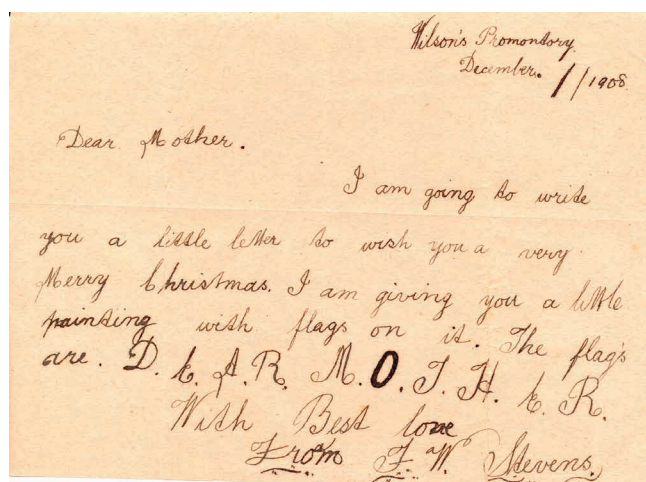 Wilson's Promontory.
December. 1/1908
Dear Mother.
I am going to write
you a little letter to wish you a very
Merry Christmas. I am giving you a little
painting with flags on it. The flags
are. D. E. A. R. M. O. T. H. E. R.
With Best love
From F. W. Stevens.